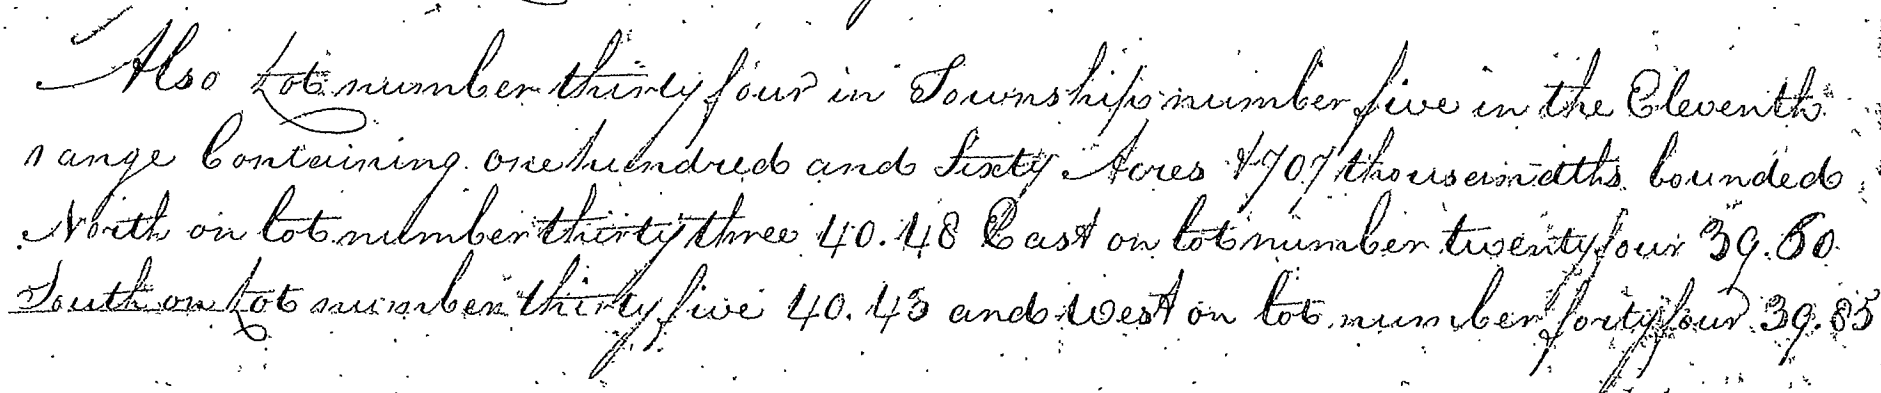 Also Lot number thirty four in Township number five in the Eleventh
range Containing one hundred and Sixty Acres & 707 thousandths bounded
North on lot number thirty three 40.48 East on lot number twenty four 39.60
South on Lot number thirty five 40.43 and West on lot number forty four 39.85